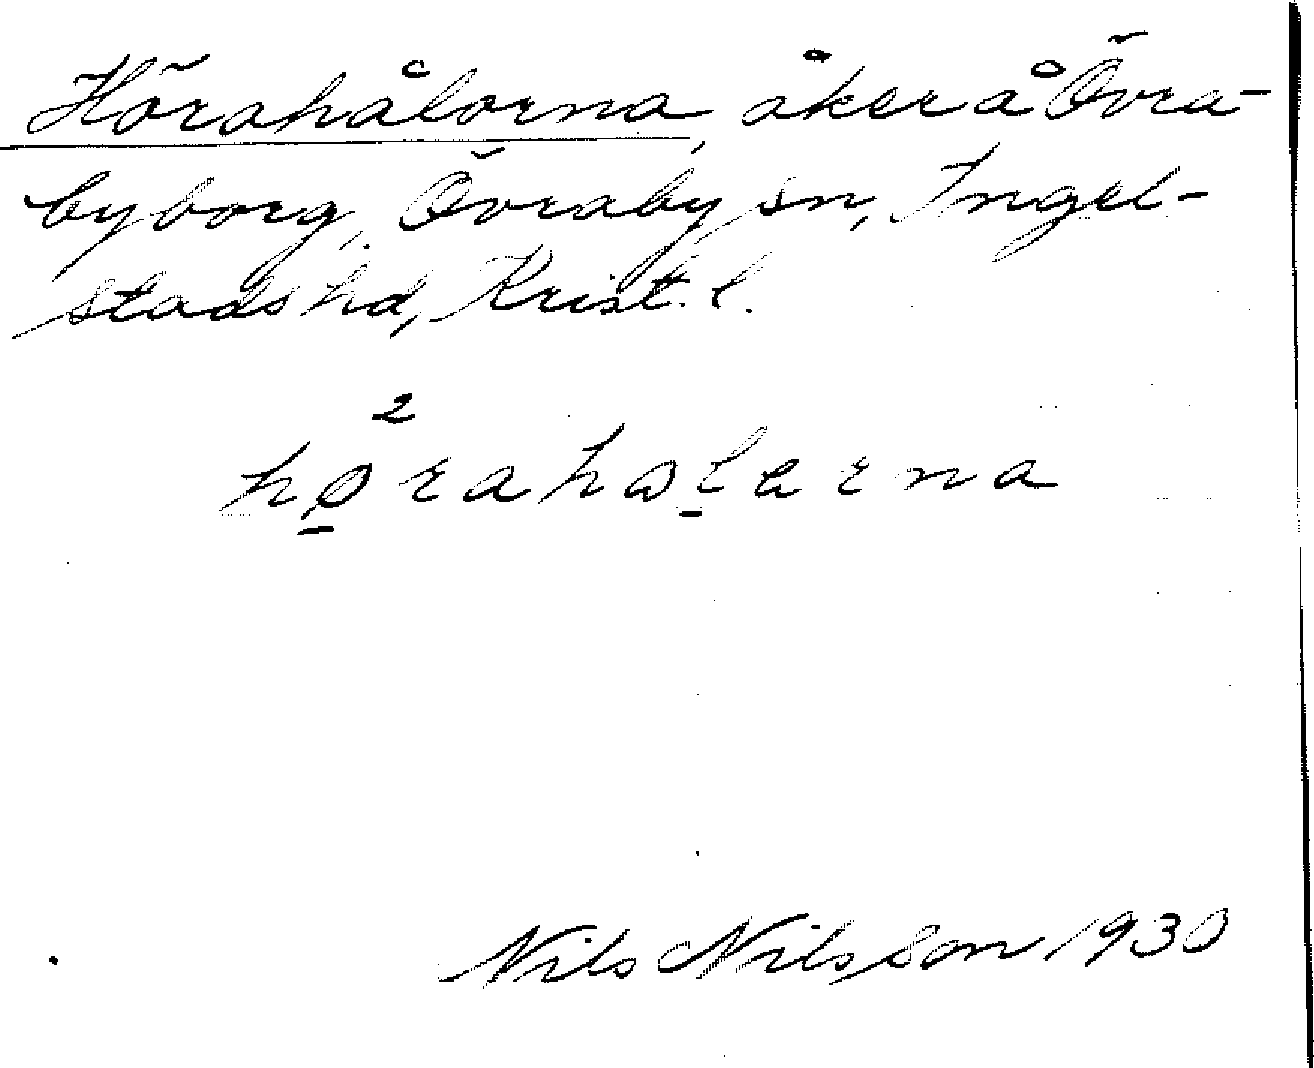 Hörahålorna, åker å Övra-
byborg, Övraby sn, Ingel-
stads hd, Krist. l.
2
hø̱rahɷḻarna
Nils Nilsson 1930